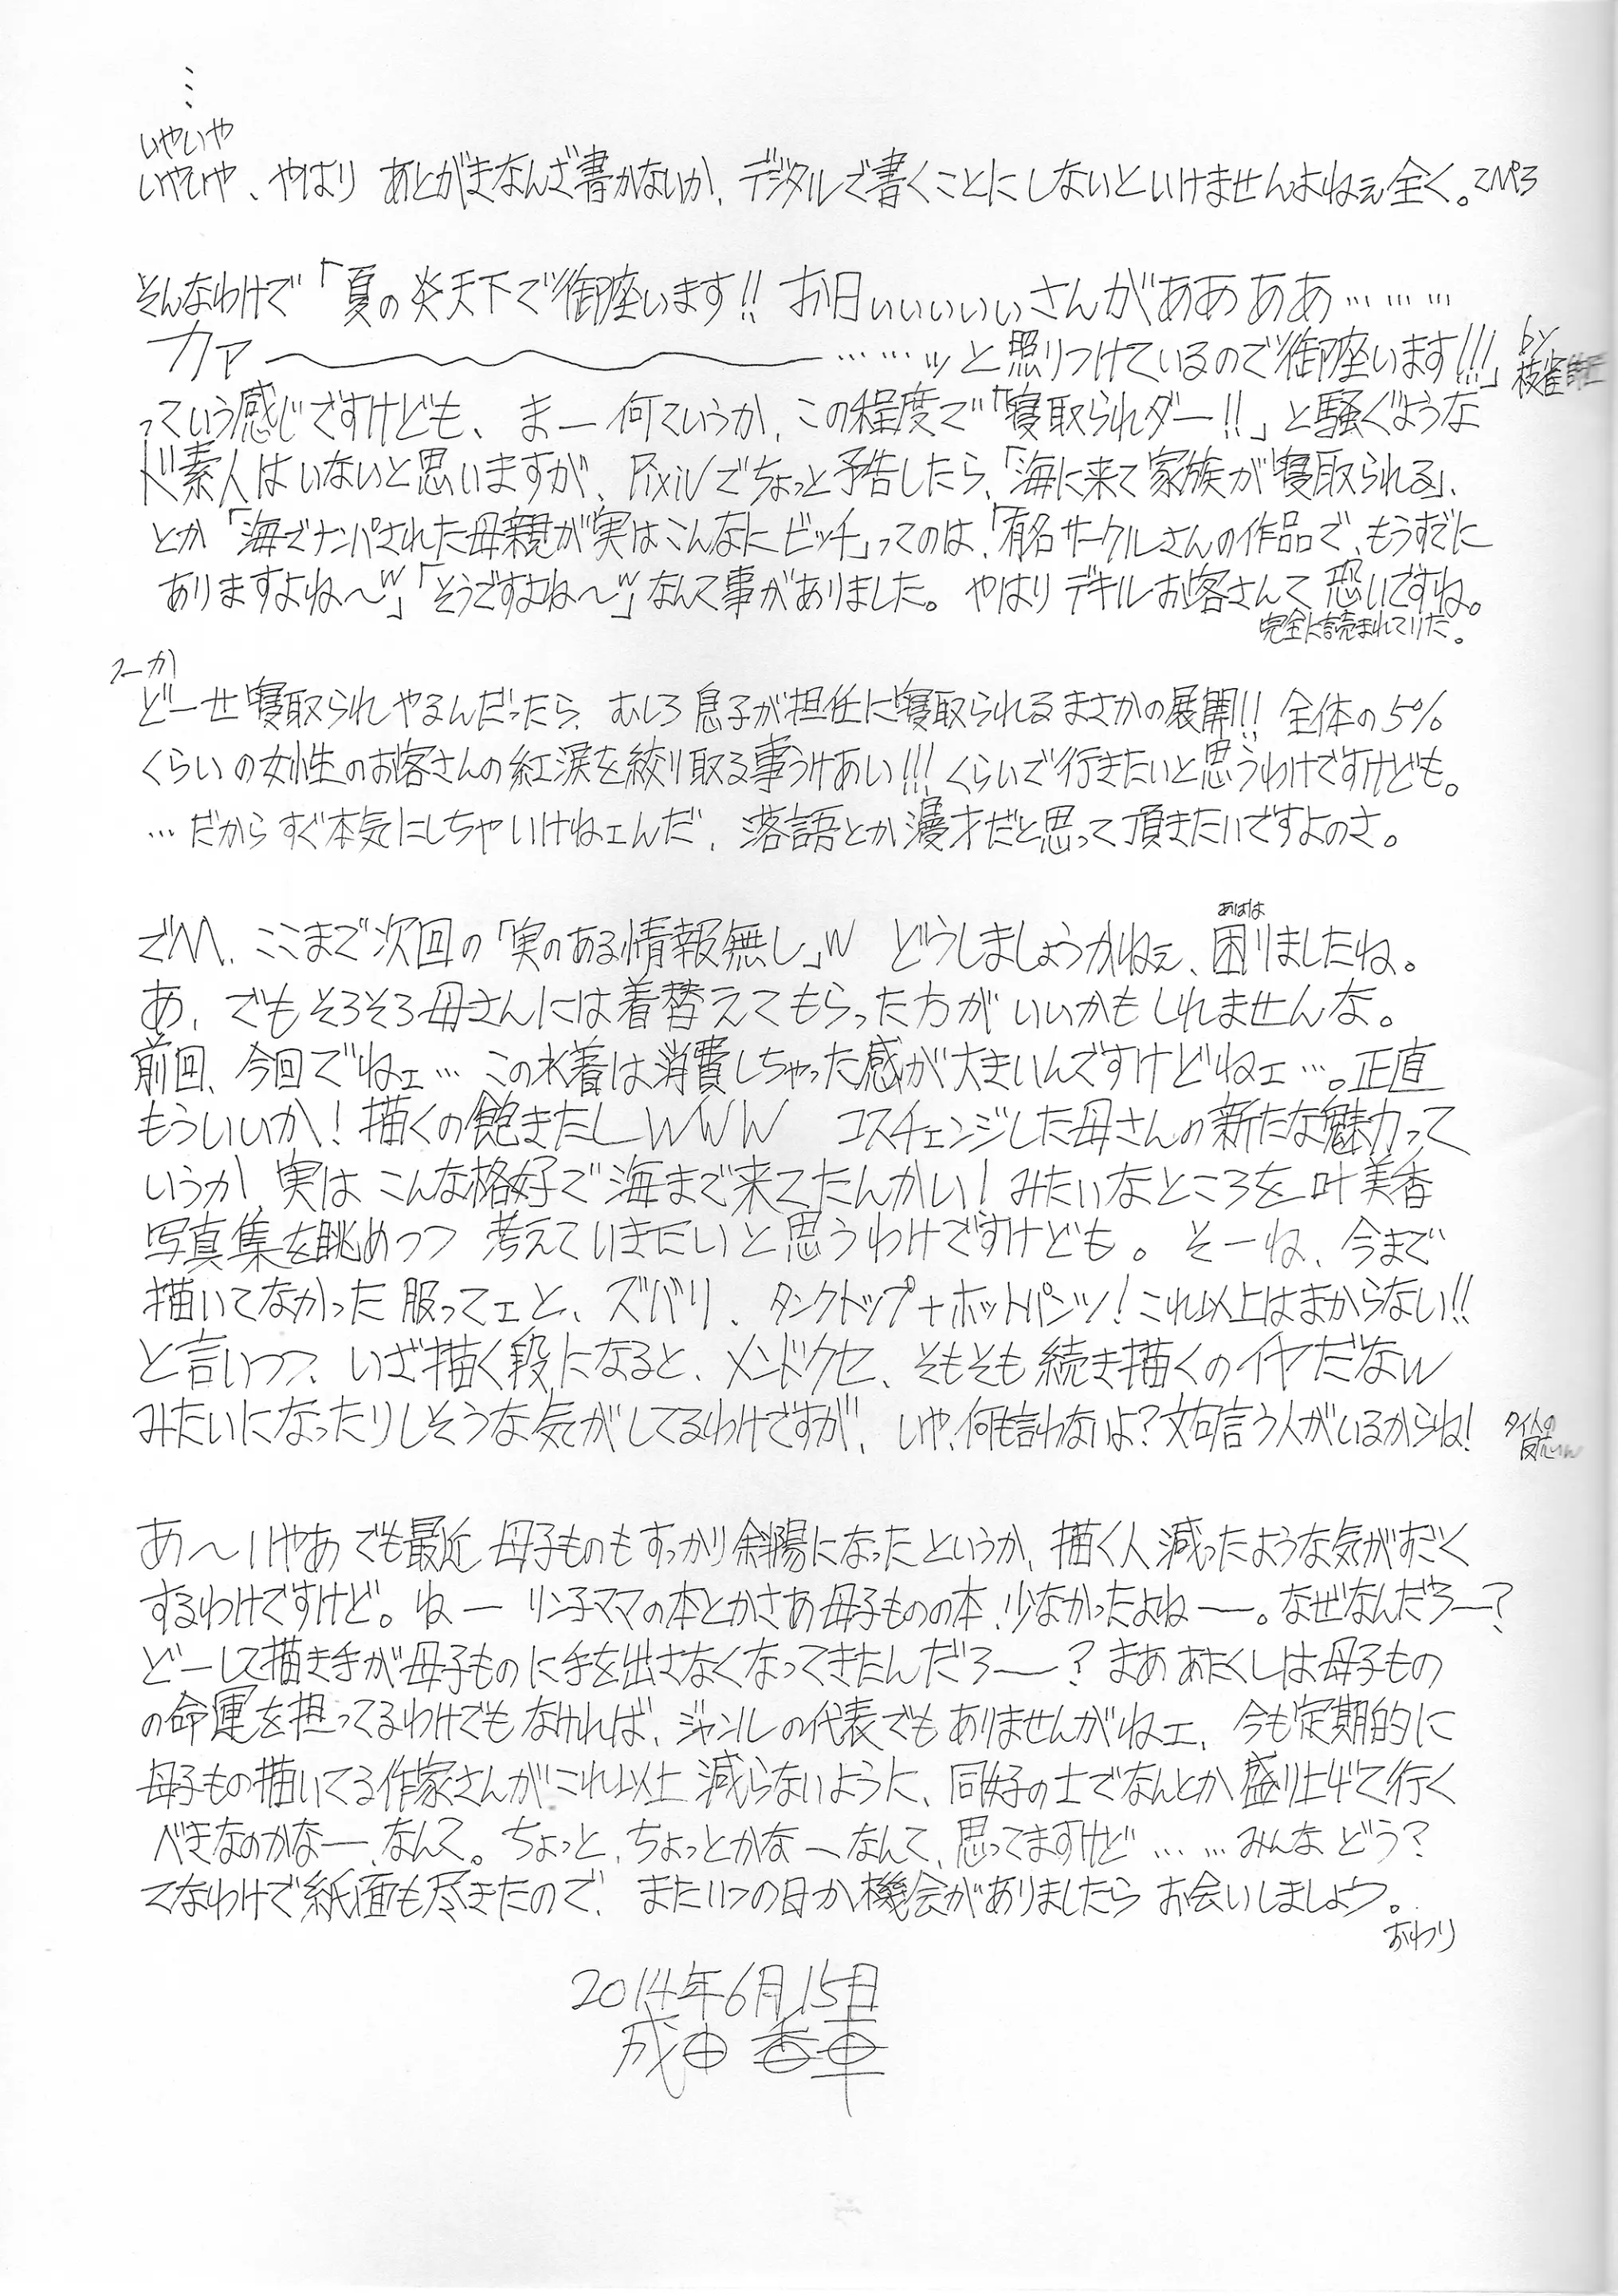 …
いやいや
いやいや、やはり あとがきなんざ書かないか、デジタルで書くことにしないといけませんよねぇ全く。てへぺろ
そんなわけで「夏の炎天下で御座います!! お日ぃぃぃぃぃさんがああああ………
カァ〜〜〜……ッと照りつけているので御座います!!!」 by 枝雀師匠
っていう感じですけども、まー何ていうか、この程度で「寝取られダー!!」と騒ぐような
ド素人はいないと思いますが、Pixivでちょっと予告したら、「海に来て家族が寝取られる」、
とか「海でナンパされた母親が実はこんなにビッチ」ってのは、「有名サークルさんの作品で、もうすでに
ありますよね〜w」「そうですよね〜w」なんて事がありました。やはりデキルお客さんて恐いですね。
完全に読まれていりだ。
つーか
どーせ寝取られやるんだったら、むしろ息子が担任に寝取られるまさかの展開!! 全体の5%
くらいの女性のお客さんの紅涙を絞り取る事うけあい!!! くらいで行きたいと思うわけですけども。
…だからすぐ本気にしちゃいけねェんだ、落語とか漫才だと思って頂きたいですよのさ。
でへへ、ここまで次回の「実のある情報無し」w どうしましょうかねぇ、困りましたね。
あはは
あ、でもそろそろ母さんには着替えてもらった方がいいかもしれませんな。
前回、今回でねェ…この水着は消費しちゃった感が大きいんですけどねェ…。正直
もういいか!描くの飽きたしwww コスチェンジした母さんの新たな魅力って
いうか、実はこんな格好で海まで来てたんかい!みたいなところを叶美香
写真集を眺めつつ 考えていきたいと思うわけですけども。そーね、今まで
描いてなかった服ってェと、ズバリ、タンクトップ+ホットパンツ!これ以上はまからない!!
と言いつつ、いざ描く段になると、メンドクセ、そもそも続き描くのイヤだなw
みたいになったりしそうな気がしてるわけですが、いや、何も言わないよ?文句言う人がいるからね!
あ〜いやあでも最近 母子ものもすっかり斜陽になったというか、描く人減ったような気がすごく
するわけですけど。ねー リン子ママの本とかさあ母子ものの本、少なかったよねー。なぜなんだろー?
どーして描き手が母子ものに手を出さなくなってきたんだろー?まああたくしは母子もの
の命運を担ってるわけでもなければ、ジャンルの代表でもありませんがねェ、今も定期的に
母子もの描いてる作家さんがこれ以上減らないように、同好の士でなんとか盛り上げて行く
べきなのかなー、なんて。ちょっと、ちょっとかなーなんて、思ってますけど……みんなどう?
てなわけで紙面も尽きたので、またいつの日か機会がありましたらお会いしましょう。
おわり
2014年6月15日
成田香車